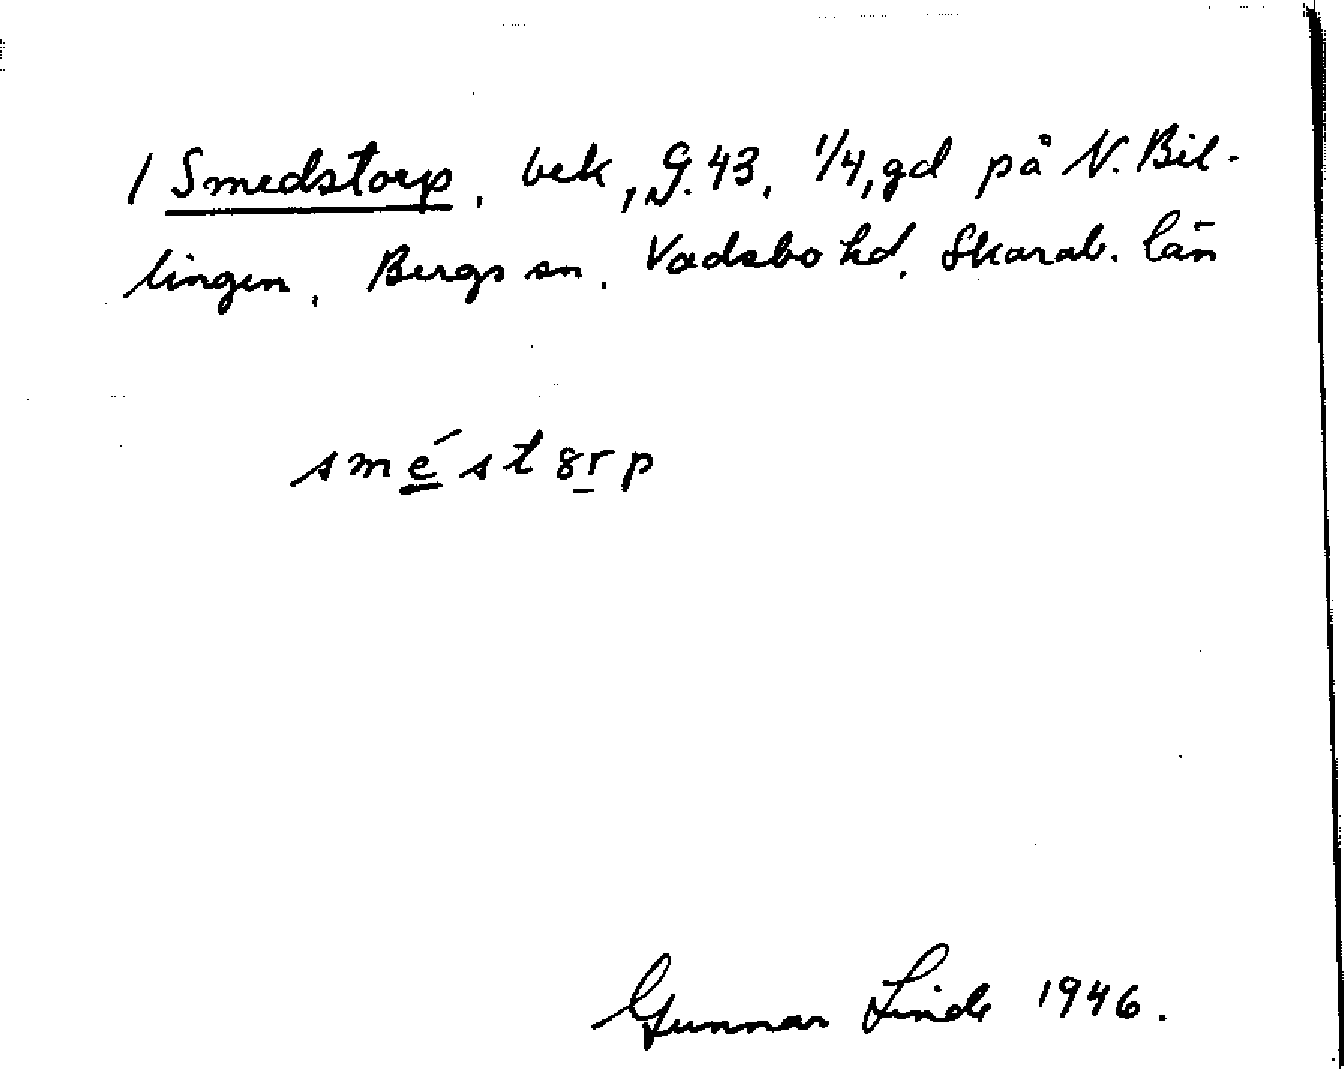 1 Smedstorp, bek, G.43, 1/4, gd på N. Bil-
lingen, Bergs sn, Vadsbo hd, Skarab. län
sméstȣrp
Gunnar Linde 1946.